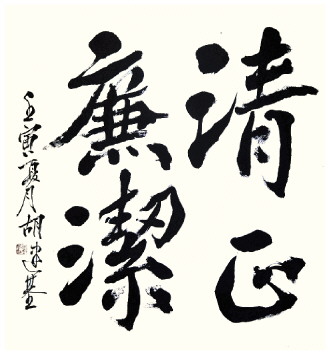 清正
廉潔
壬寅夏月胡建基